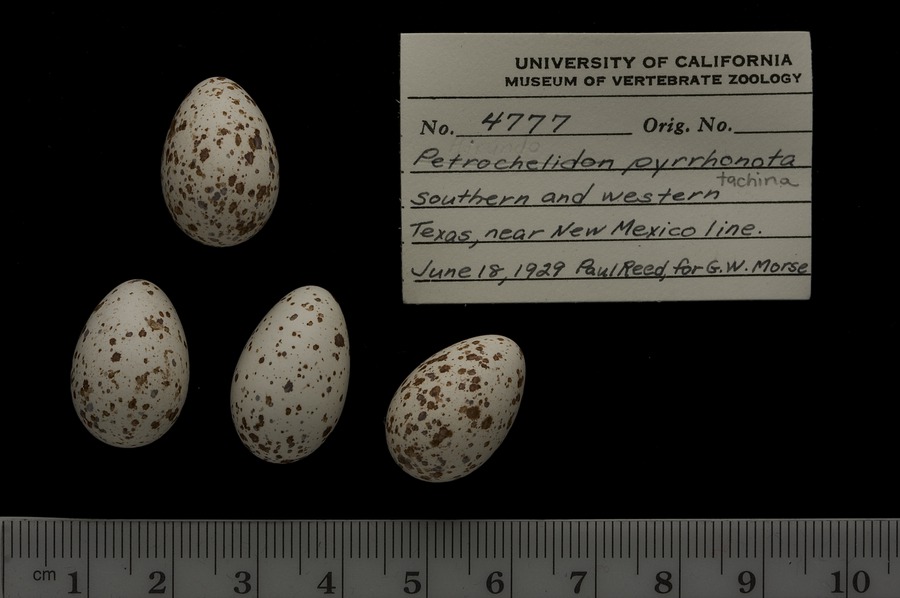 UNIVERSITY OF CALIFORNIA
MUSEUM OF VERTEBRATE ZOOLOGY
No. 4777 Orig. No.
Hirundo
Petrochelidon pyrrhonota
tachina
Southern and western
Texas, near New Mexico line.
June 18, 1929 Paul Reed, for G.W. Morse
cm 1 2 3 4 5 6 7 8 9 10